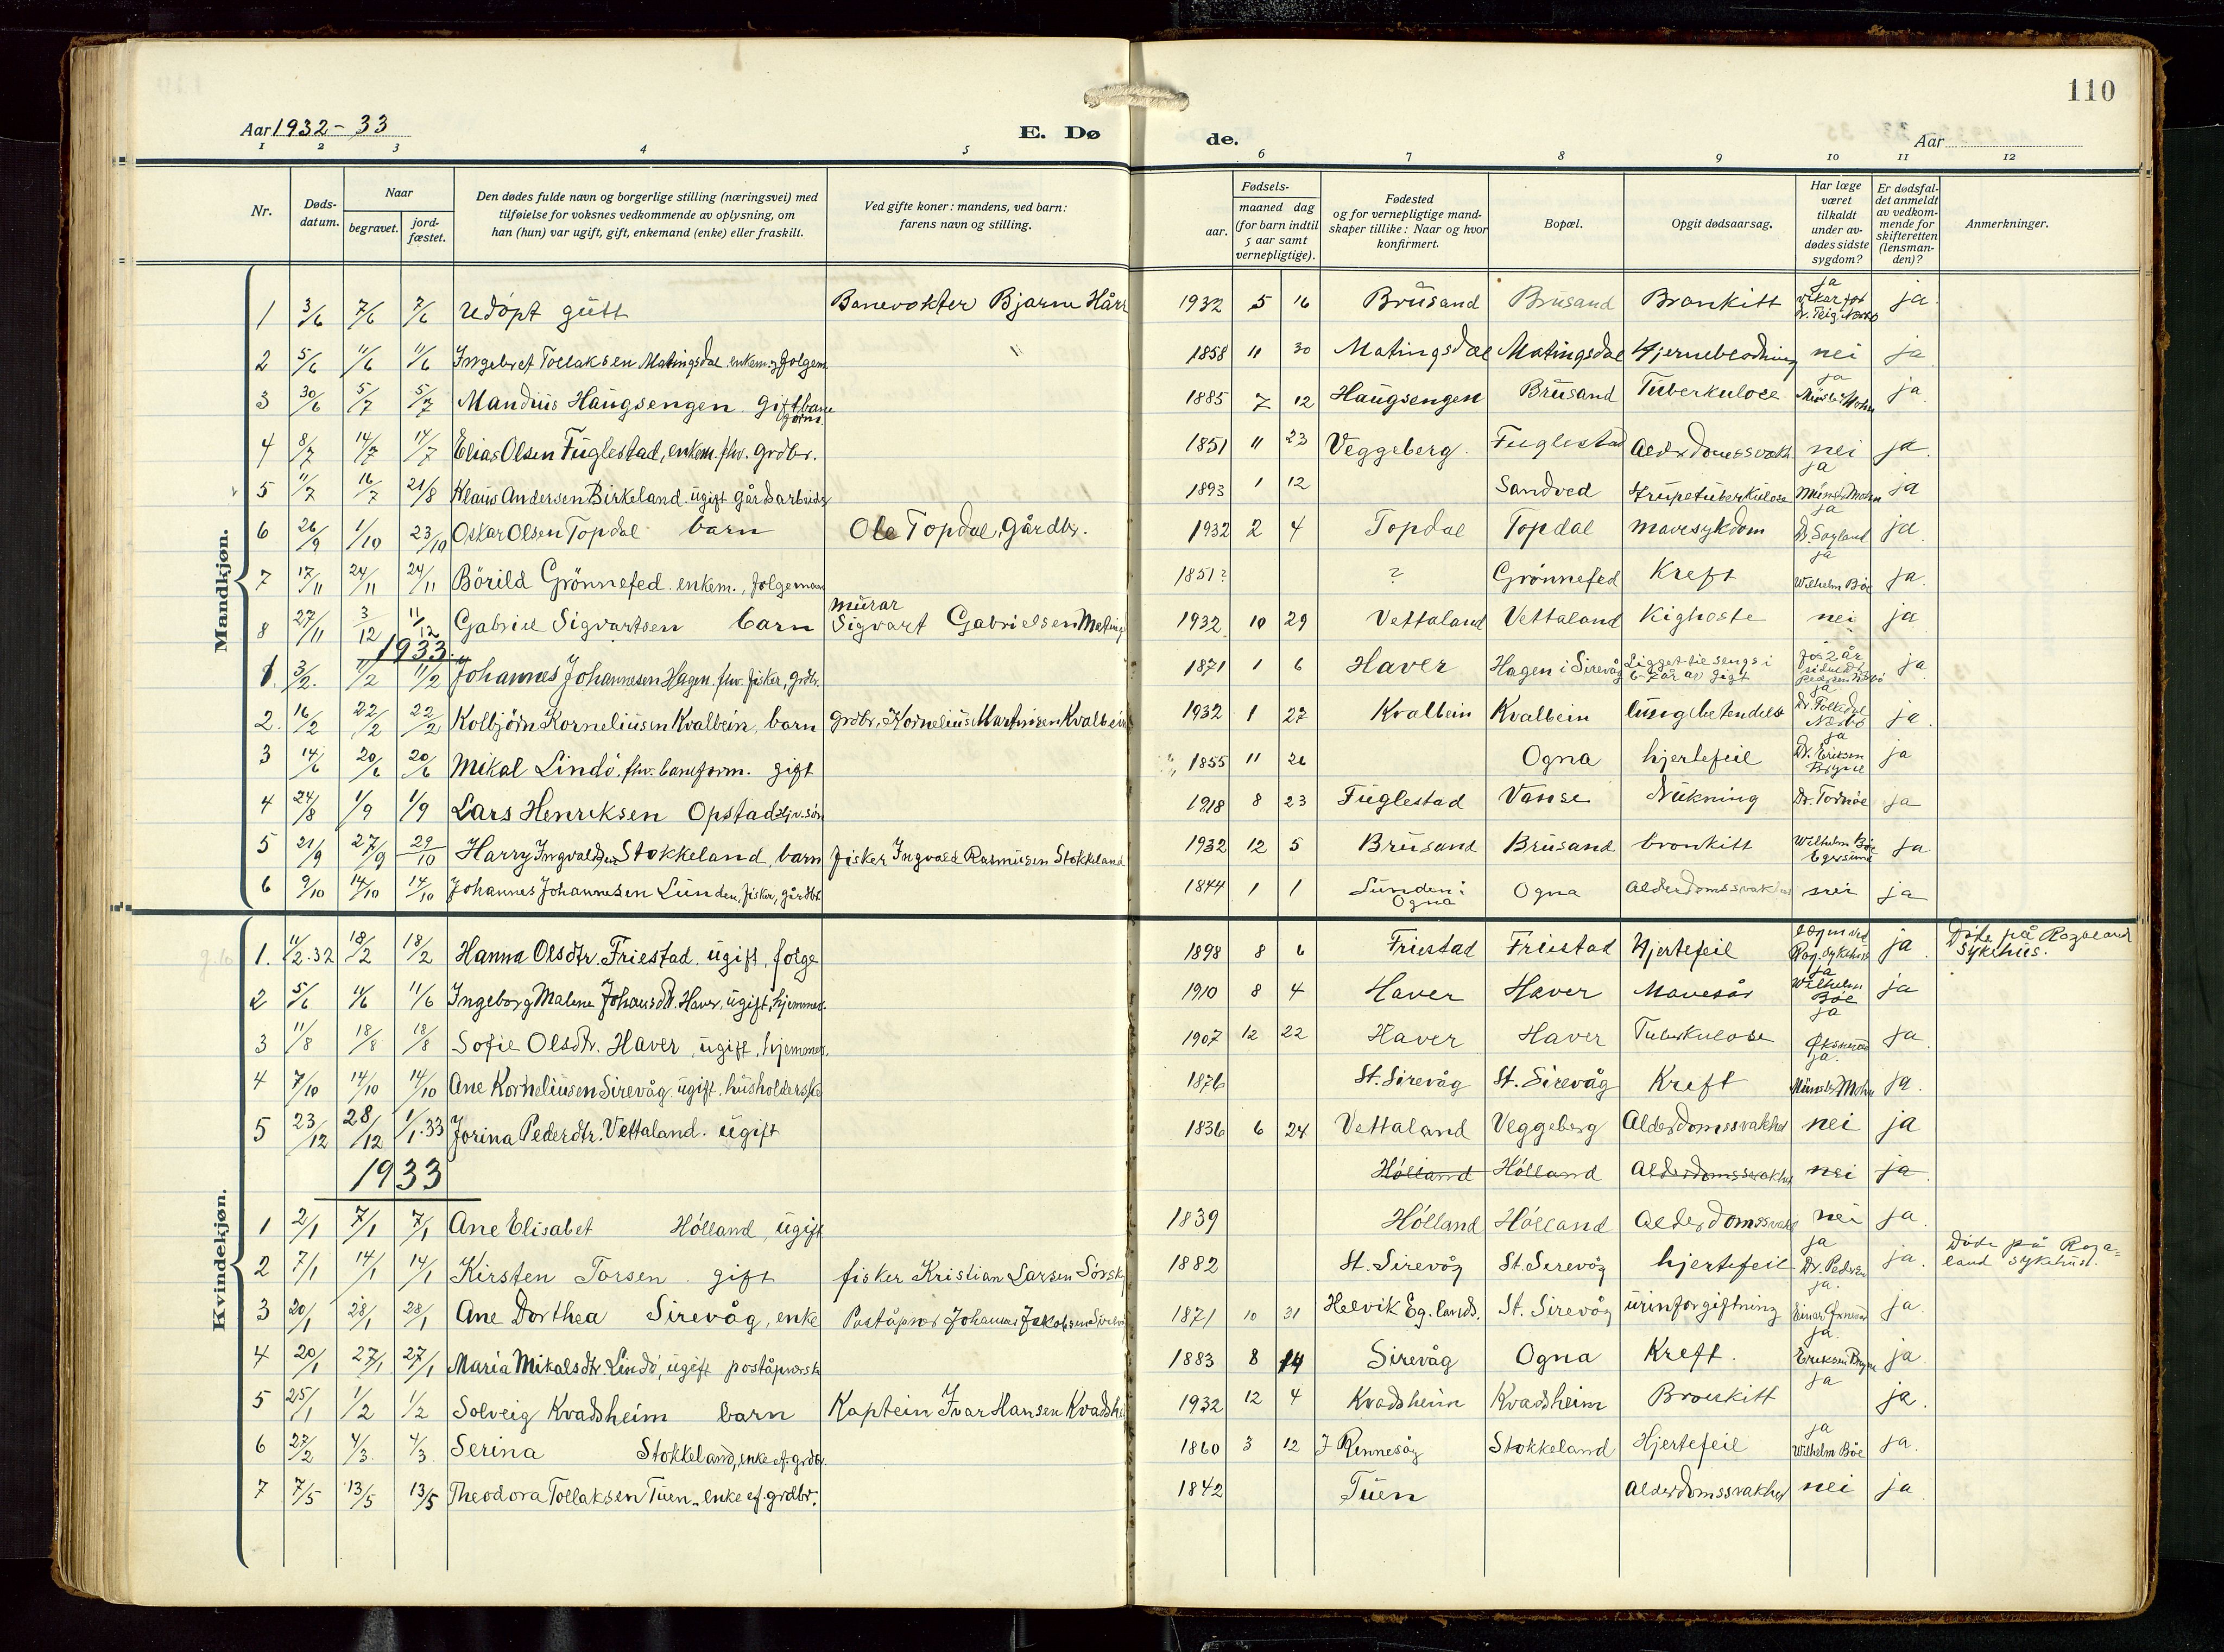 110
Aar 1932-33
E. Dø
de.
Aar
1 2 3 4 5 6 7 8 9 10 11 12
Nr.
Døds-datum.
Naar
begravet.
jord-fæstet.
Den dødes fulde navn og borgerlige stilling (næringsvei) med
tilføielse for voksnes vedkommende av oplysning, om
han (hun) var ugift, gift, enkemand (enke) eller fraskilt.
Ved gifte koner: mandens, ved barn:
farens navn og stilling.
Fødsels-
aar.
maaned dag
(for barn indtil
5 aar samt
vernepligtige).
Fødested
og for vernepligtige mand-
skaper tillike: Naar og hvor
konfirmert.
Bopæl.
Opgit dødsaarsag.
Har læge
været
tilkaldt
under av-
dødes sidste
sygdom?
Er dødsfal-
det anmeldt
av vedkom-
mende for
skifteretten
(lensman-
den)?
Anmerkninger.
Mandkjøn.
1 3/6 7/6 7/6 Udöpt gutt Banevokter Bjarne Hårr 1932 5 16 Brusand Brusand Bronkitt ja vikar for ja
2 5/6 11/6 11/6 Ingebret Tollaksen Matingsdal enkem. og folgem. " 1858 11 30 Matingsdal Matingsdal Hjerneblödning nei ja
3 30/6 5/7 5/7 Mandius Haugsengen gift bane form. 1885 7 12 Haugsengen Brusand Tuberkulose ja ja
4 8/7 14/7 14/7 Elias Olsen Fuglestad, enkem. fhv. grdbr. 1851 11 23 Veggeberg Fuglestad Alderdomssvakh nei ja
5 11/7 16/7 21/8 Klaus Andersen Birkeland ugift gårdsarbeider 1893 1 12 Sandved Strupetuberkulose ja Münster Mohn ja
6 26/9 1/10 23/10 Oskar Olsen Topdal barn Ole Topdal, gårdbr. 1932 2 4 Topdal Topdal mavesykdom ja ja
7 17/11 24/11 24/11 Börild Grönnefed enkem., folgemann 1851? ? Grönnefed Kreft ja Wilhelm Böe ja
8 27/11 3/12 11/12 Gabriel Sigvartsen barn murar Sigvart Gabrielsen Matings 1932 10 29 Vettaland Vettaland Kighoste nei ja
1933
1. 3/2 11/2 11/2 Johannes Johannesen Hagen fhv. fisker, grdbr. 1871 1 6 Haver Hagen i Sirevåg Ligget til sengs i 6-7 år av gigt for 2 år ja
2. 16/2 22/2 22/2 Kolbjörn Korneliusen Kvalbein, barn grdbr. Kornelius Martinsen Kvalbein 1932 1 27 Kvalbein Kvalbein lungebetendelse ja ja
3 14/6 20/6 20/6 Mikal Lindö. fhv. baneform. gift 1855 11 26 Ogna hjertefeil ja Dr. Eriksen Bryne ja
4 24/8 1/9 1/9 Lars Henriksen Opstad 1918 8 23 Fuglestad Drukning ja
5 21/9 27/9 29/10 Harry Ingvaldsen Stokkeland, barn fisker Ingvald Rasmusen Stokkeland 1932 12 5 Brusand Brusand bronkitt Wilhelm Böe Egersund ja
6 9/10 14/10 14/10 Johannes Johannesen Lunden, fisker, gårdbr. 1844 1 1 Lunden i Ogna Ogna Alderdomssvakhet nei ja
Kvindekjøn.
1. 11/2.32 18/2 18/2 Hanna Olsdtr. Friestad. ugift, folge 1898 8 6 Friestad Friestad Hjertefeil Rog. sykehus ja Döde på Rogaland sykehus.
2 5/6 11/6 11/6 Ingeborg Malene Johansdtr. Haver, ugift, hjemmev. 1910 8 4 Haver Haver Mavesår ja Wilhelm Böe ja
3 11/8 18/8 18/8 Sofie Olsdtr. Haver, ugift, hjemmev. 1907 12 22 Haver Haver Tuberkulose ja ja
4 7/10 14/10 14/10 Ane Korneliusen Sirevåg ugift, husholderske 1876 St. Sirevåg St. Sirevåg Kreft ja. Münster Mohn ja.
5 23/12 28/12 1/1.33 Jorina Pederdtr. Vettaland. ugift 1836 6 24 Vettaland Veggeberg Alderdomssvakhet nei ja
1933
Hölland Hölland Alderdomssvakhet nei ja
1 2/1 7/1 7/1 Ane Elisabet Hölland, ugift 1839 Hölland Hölland Alderdomssvakh nei ja
2 7/1 14/1 14/1 Kirsten Torsen. gift fisker Kristian Larsen 1882 St. Sirevåg St. Sirevåg hjertefeil ja ja. Döde på Roga-land sykehus.
3 20/1 28/1 28/1 Ane Dorthea Sirevåg, enke Poståpner Johannes Jakobsen Sirevåg 1871 10 31 Helvik Eg. lands. St. Sirevåg urinforgiftning ja. ja.
4 20/1 27/1 27/1 Maria Mikalsdtr. Lindö, ugift poståpnerske 1883 8 14 Sirevåg Ogna Kreft. ja. Eriksen Bryne ja
5 25/1 1/2 1/2 Solveig Kvadsheim barn Kaptein Ivar Hansen Kvadshe 1932 12 4 Kvadsheim Kvadsheim Bronkitt ja ja.
6 27/2 4/3 4/3 Serina Stokkeland, enke ef. grdbr. 1860 3 12 I Rennesöy Stokkeland Hjertefeil ja Wilhelm Böe ja.
7 7/5 13/5 13/5 Theodora Tollaksen Tuen. enke ef. grdbr. 1842 Tuen Alderdomssvakhet nei ja